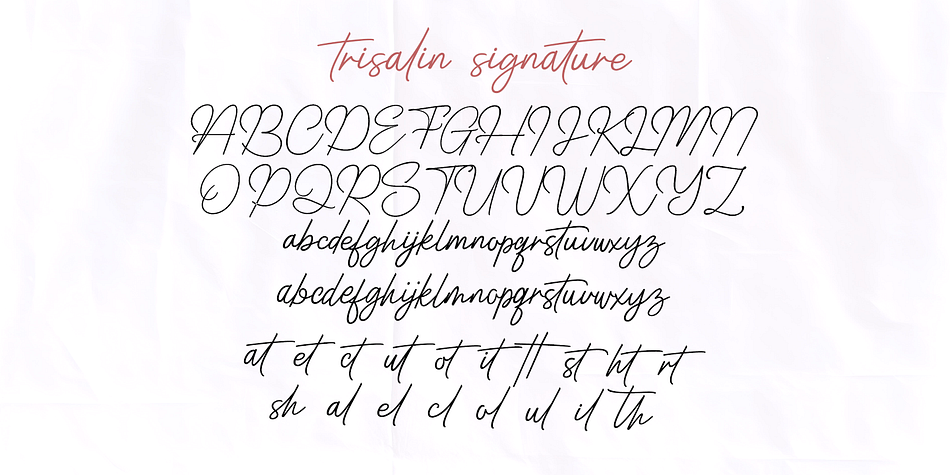 trisalin signature
ABCDEFGHIJKLMN
OPQRSTUVWXYZ
abcdefghijklmnopqrstuvwxyz
abcdefghijklmnopqrstuvwxyz
at et ct ut ot it tt st ht rt
sh al el cl ol ul il th